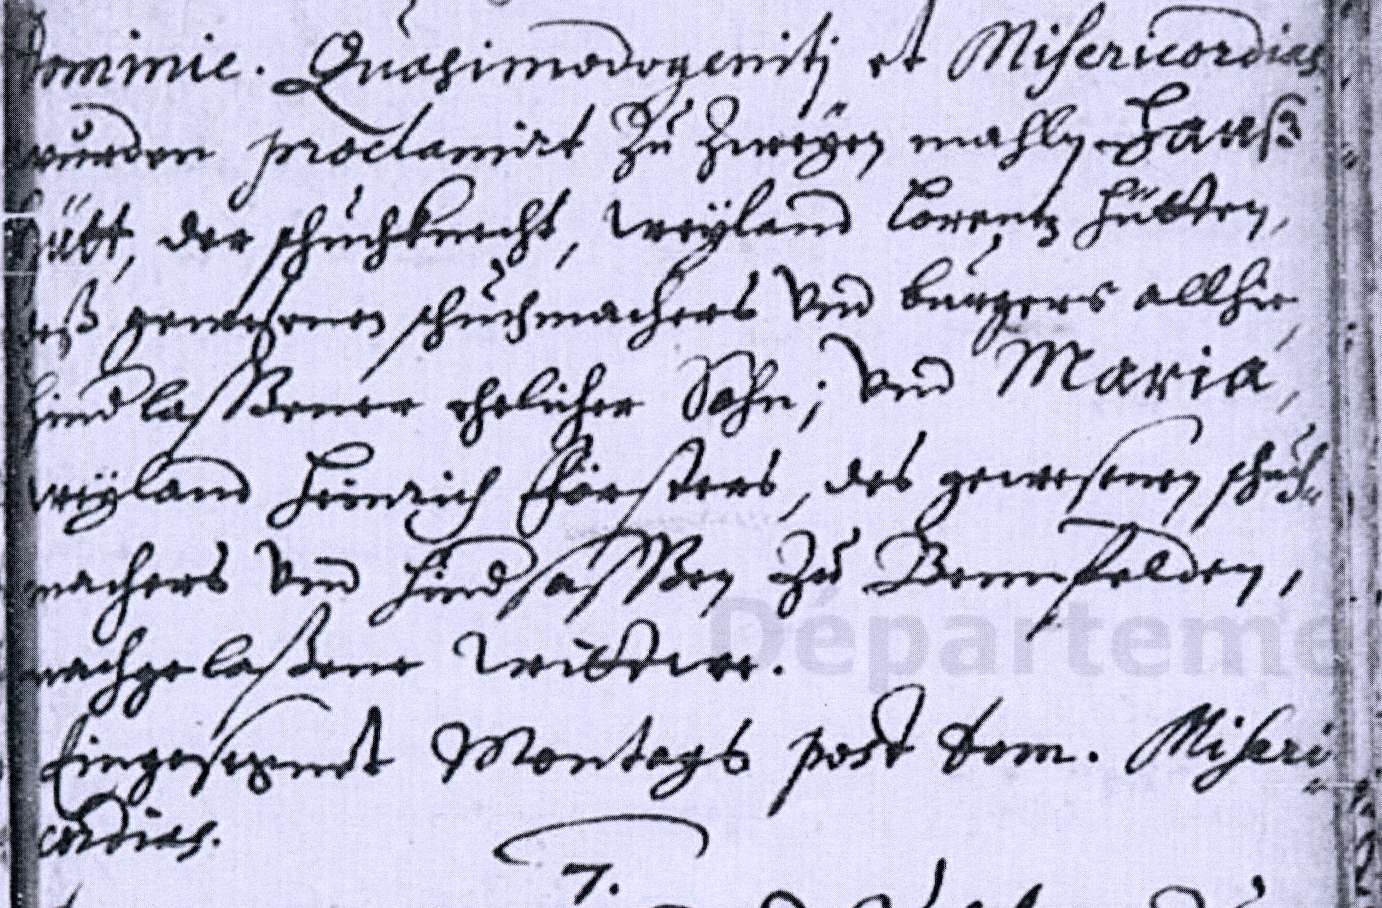 Dominic. Quasimodogeniti et Misericordias
wurden proclamirt Zu Zweÿen mahlen Hanß
Hütt, der schuchknecht, weÿland Lorentz Hütten,
deß gewesenen schuchmachers Vnd burgers allhie,
hindlaßener ehelicher Sohn; Vnd Maria,
weÿland Heinrich Försters, des gewesenen schuch-
machers Vnd hindsaßen Zu Bennfelden,
nachgelaßene Wittwe.
Eingesegnet Montags post Dom. Miseri-
cordias.
7.
Départeme